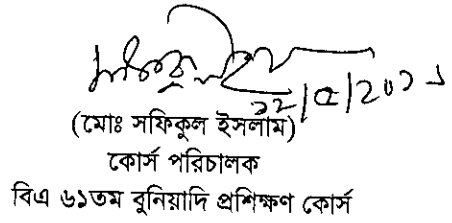 (মোঃ সফিকুল ইসলাম)
কোর্স পরিচালক
বিএ ৬১তম বুনিয়াদি প্রশিক্ষণ কোর্স